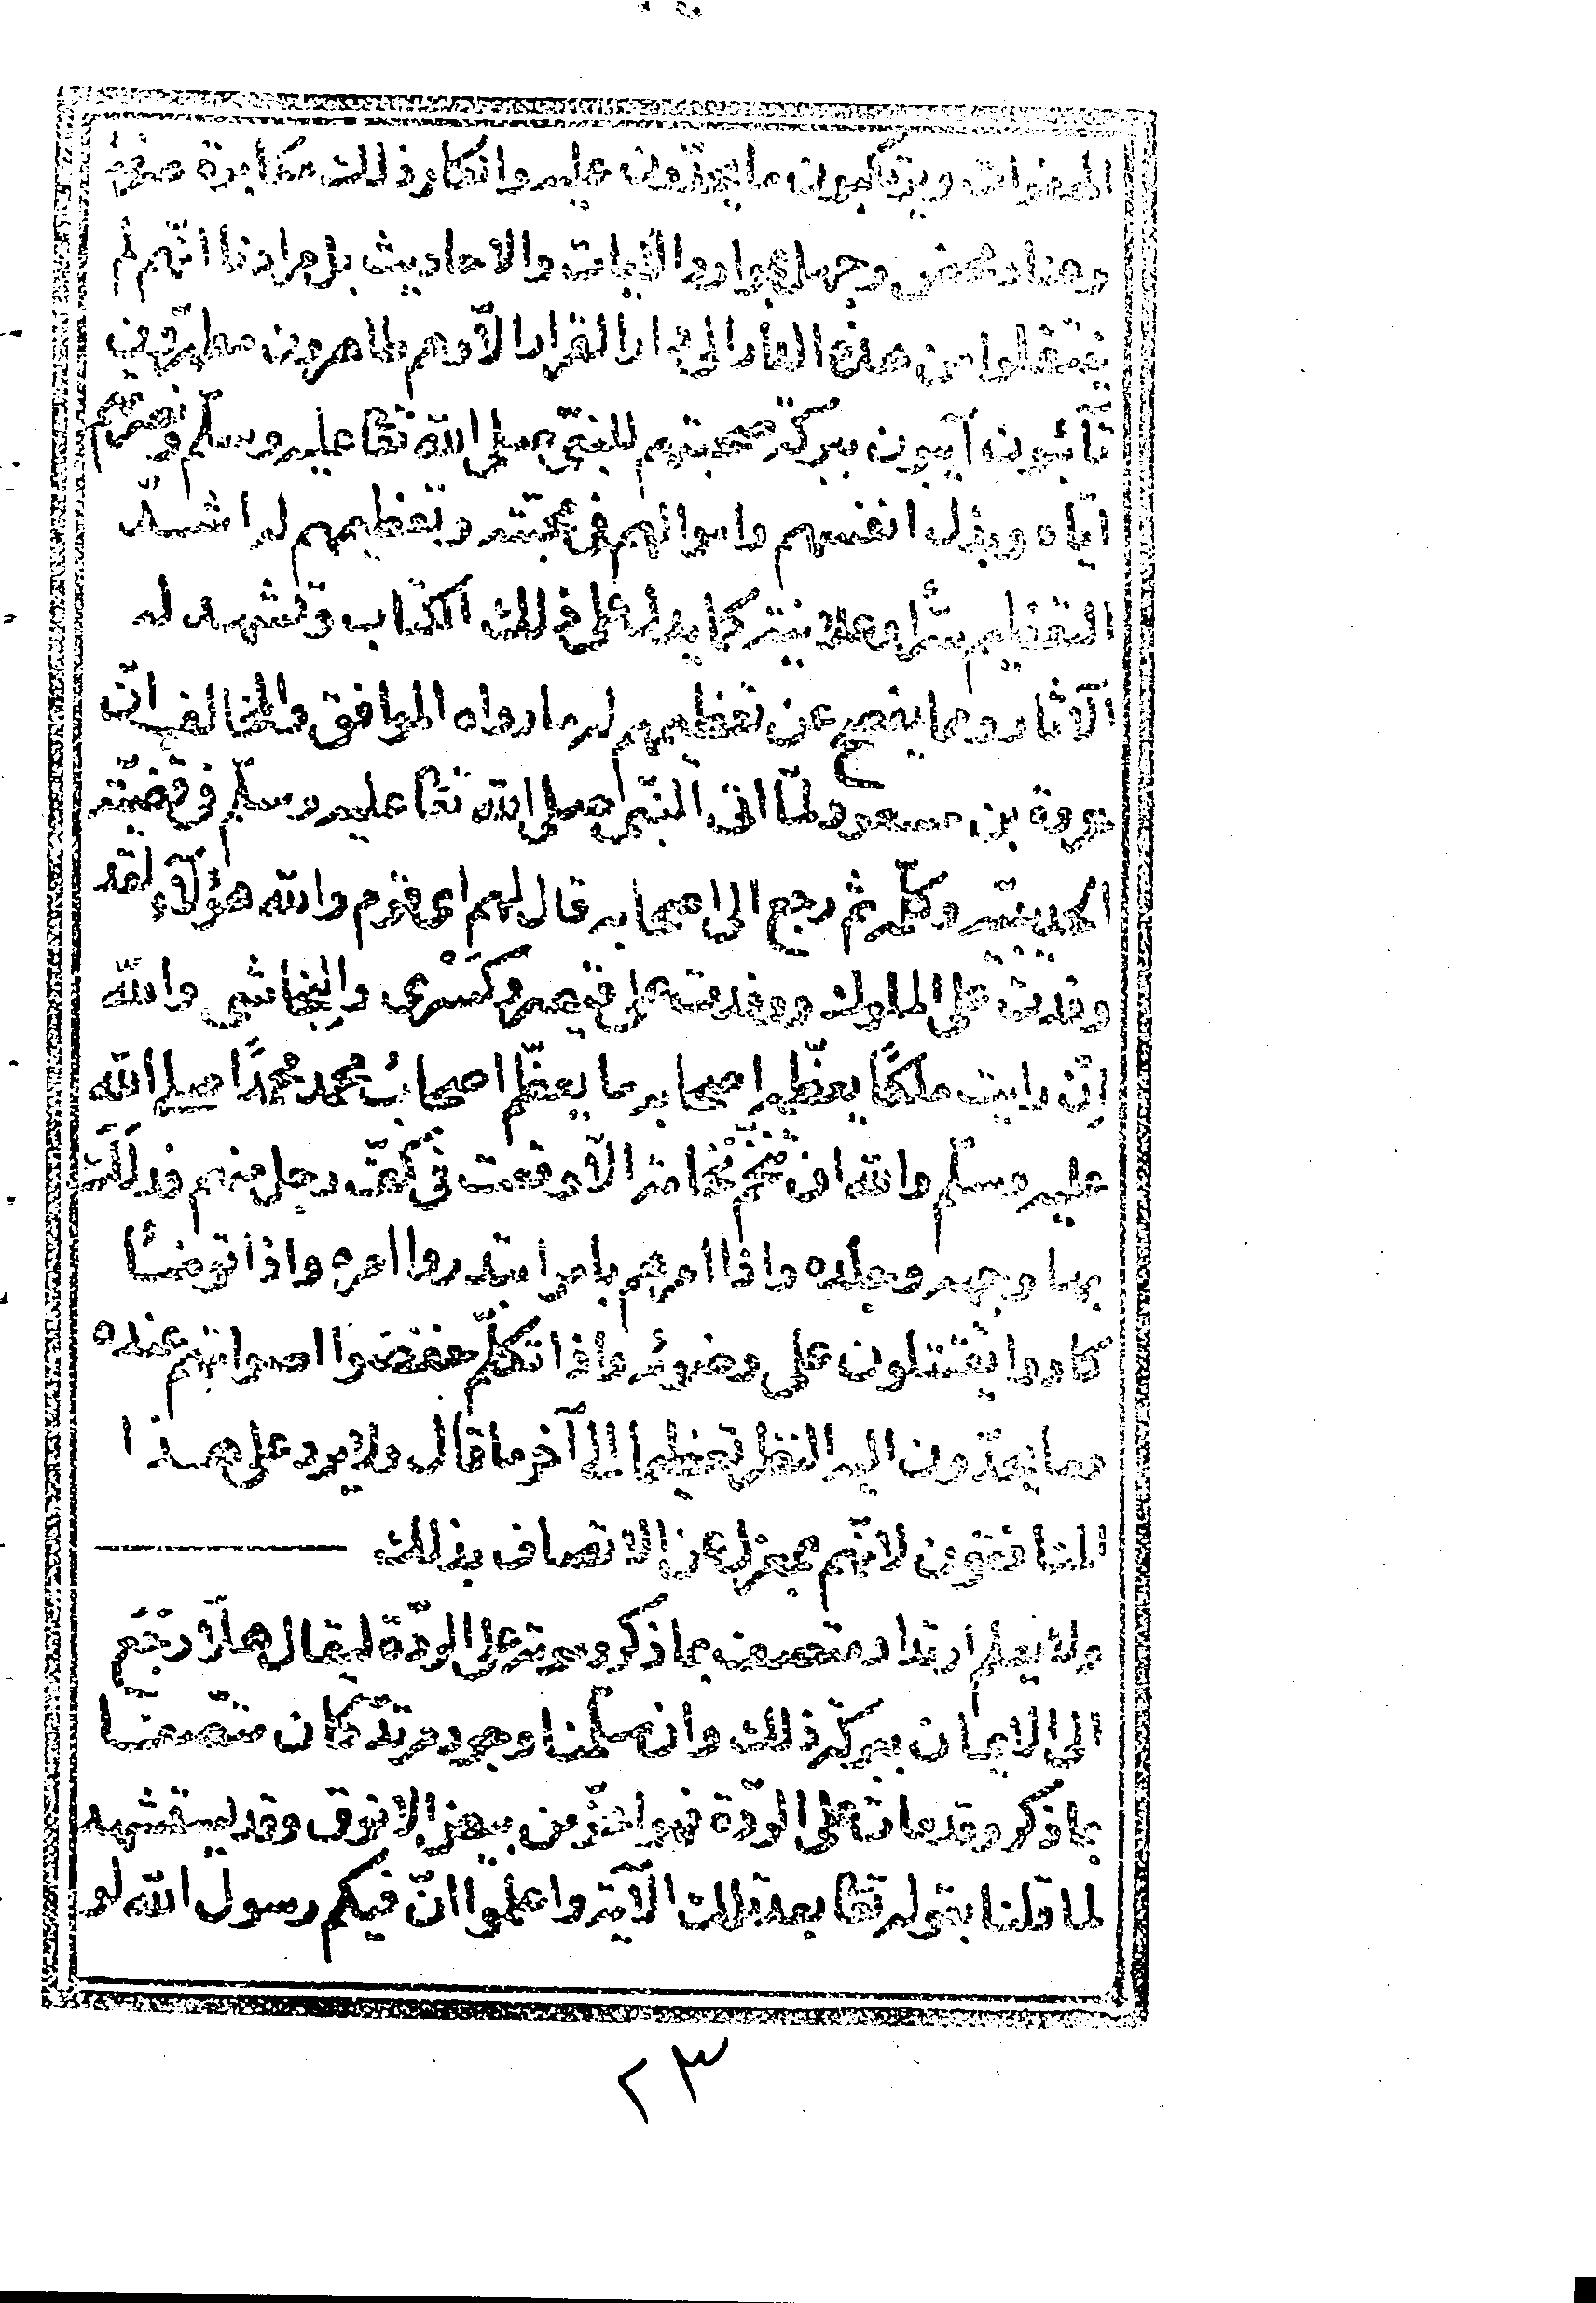 الهفوات ويرتكبون ما يعترفون عليه وانكار ذلك مكابرة صرفة
وعناد محض وجهل بموارد الآيات والاحاديث بل مرادنا انهم لم
ينتقلوا من هذه الدار الى دار القرار الا وهم طاهرون مطهرون
تائبون آيبون ببركة صحبتهم للنبي صلى الله تعا عليه وسلم ونصرتهم
اياه وبذل انفسهم واموالهم في محبته وتعظيمهم له اشد
التعظيم سرا وعلانية كما يدل على ذلك الكتاب وتشهد له
الآثار ومما يفصح عن تعظيمهم له ما رواه الموافق والمخالف ان
عروة بن مسعود لما اتى النبي صلى الله تعا عليه وسلم في قضية
الحديبية وكلمه ثم رجع الى اصحابه قال لهم اي قوم والله هؤلاء لقد
وفدت على الملوك ووفدت على قيصر وكسرى والنجاشي والله
ان رايت ملكا يعظمه اصحابه ما يعظم اصحاب محمد محمدا صلى الله
عليه وسلم والله ان تنخم نخامة الا وقعت في كف رجل منهم فدلك
بها وجهه وجلده واذا امرهم بامر ابتدروا امره واذا توضأ
كادوا يقتتلون على وضوئه واذا تكلم خفضوا اصواتهم عنده
وما يحدون اليه النظر تعظيما له الى آخر ما قال ولا يرد على هذا
المنافقون لانهم بمعزل عن الاتصاف بذلك
ولا يعلم ارتداد متصف بما ذكر وموته على الردة ليقال هلا رجع
الى الايمان ببركة ذلك وان سلمنا وجود مرتد كان متصفا
بما ذكر وقد مات على الردة فهو اعز من بيض الانوق وقد يستشهد
لما قلنا بقوله تعا بعد تلك الآية واعلموا ان فيكم رسول الله لو
٢٣